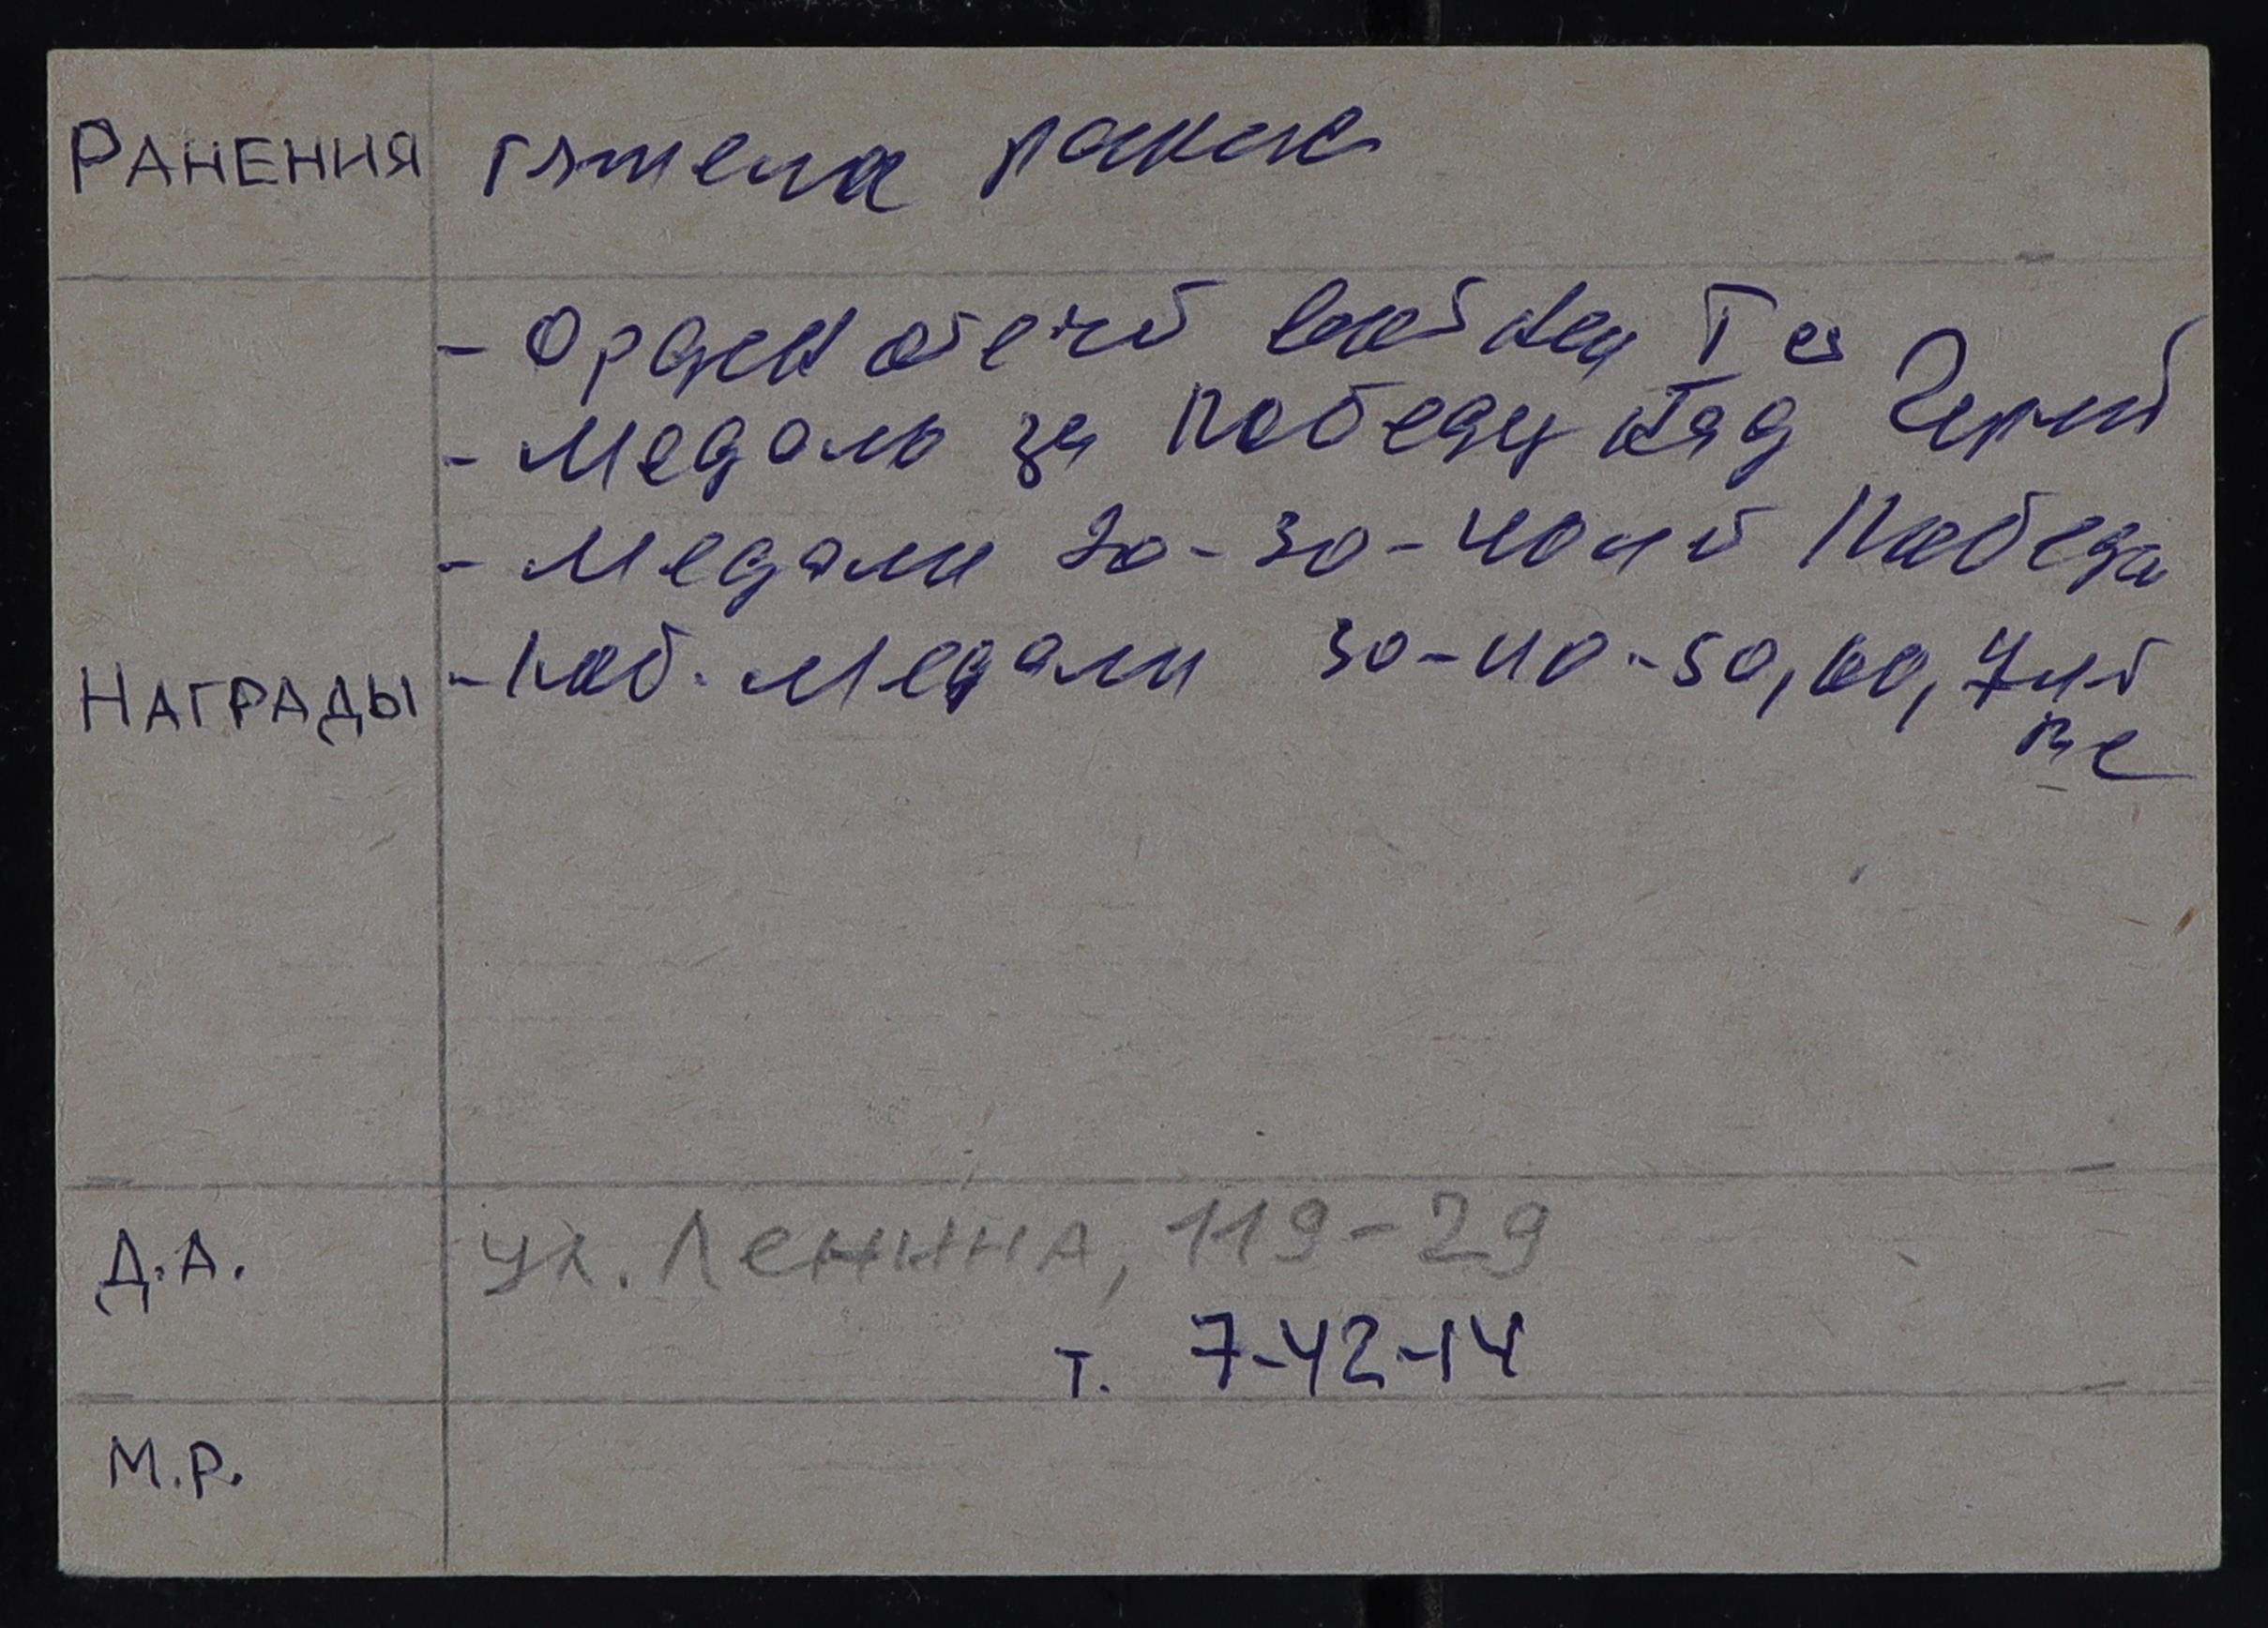 РАНЕНИЯ тяжело ранен
- Орден отеч войны I ст
- Медаль за победу над Герм
- Медали 20-30-40 лет Победа
НАГРАДЫ - юб. медали 30-40-50, 60, 7 лет
ВС
Д.А. ул. Ленина, 119-29
т. 7-42-14
М.Р.